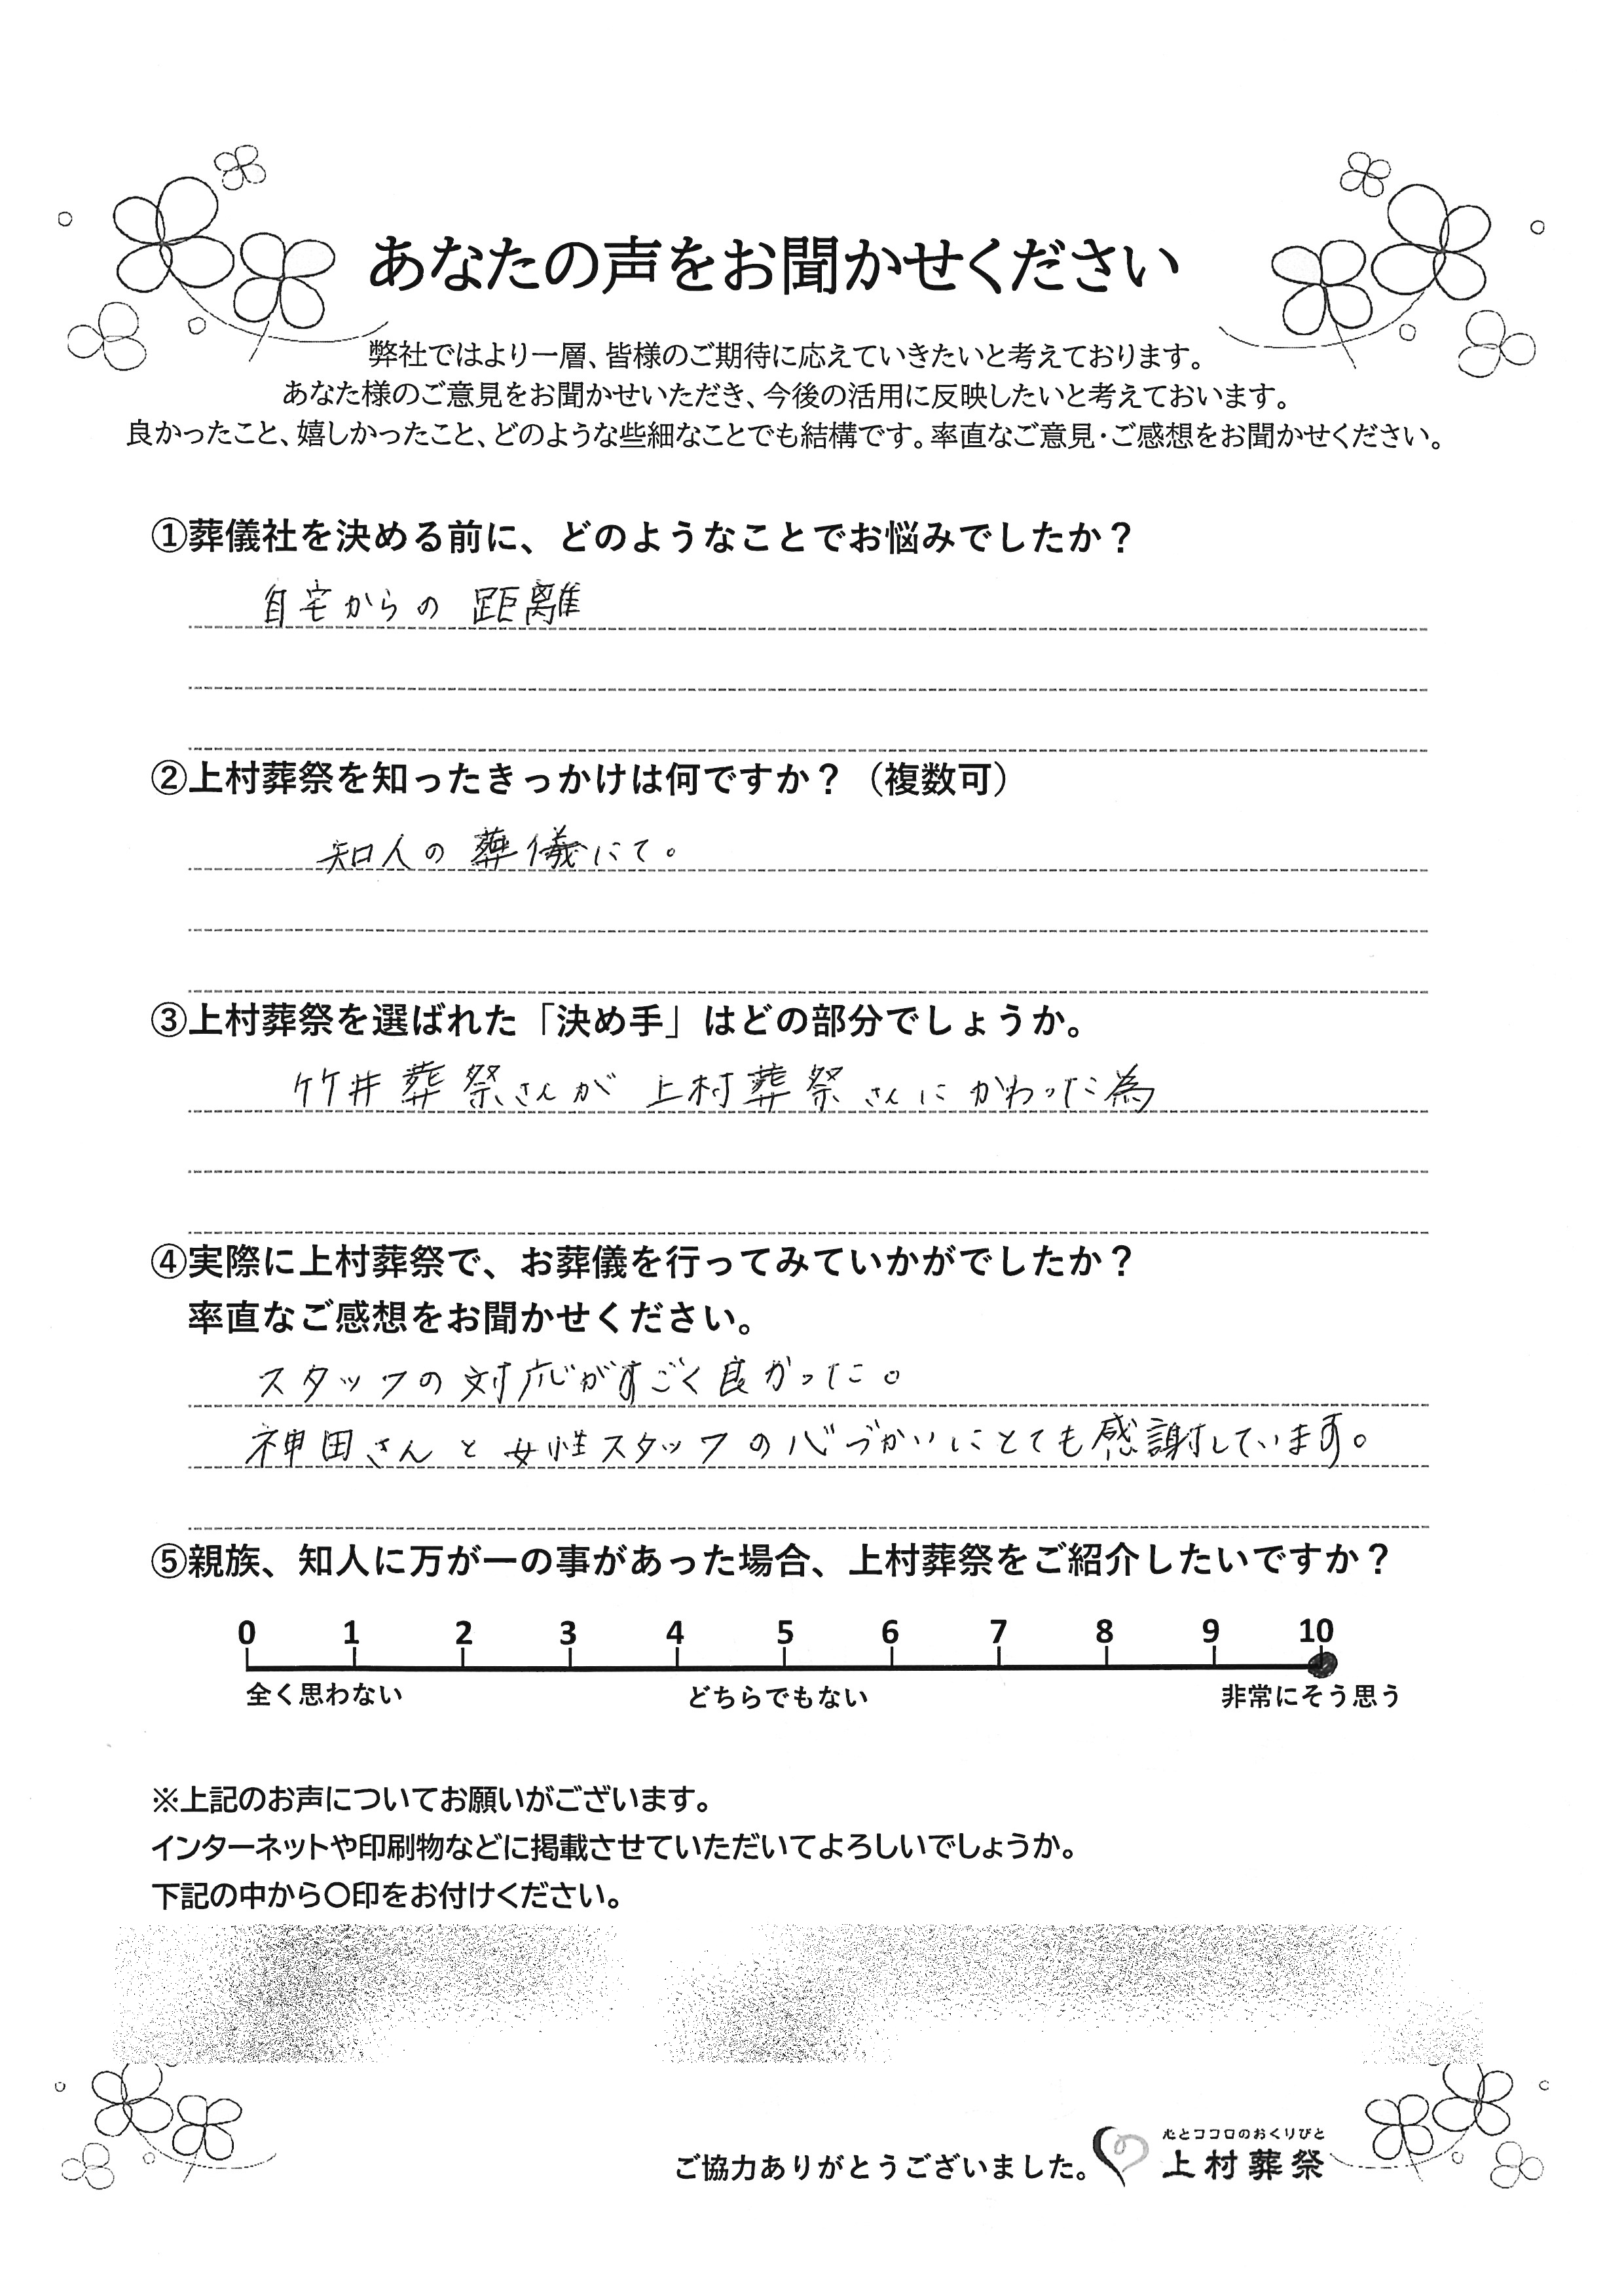 あなたの声をお聞かせください
弊社ではより一層、皆様のご期待に応えていきたいと考えております。
あなた様のご意見をお聞かせいただき、今後の活用に反映したいと考えておいます。
良かったこと、嬉しかったこと、どのような些細なことでも結構です。率直なご意見・ご感想をお聞かせください。
①葬儀社を決める前に、どのようなことでお悩みでしたか？
自宅からの 距離
②上村葬祭を知ったきっかけは何ですか？（複数可）
知人の 葬儀にて。
③上村葬祭を選ばれた「決め手」はどの部分でしょうか。
竹井葬祭さんが 上村葬祭さんにかわった為
④実際に上村葬祭で、お葬儀を行ってみていかがでしたか？
率直なご感想をお聞かせください。
スタッフの対応がすごく良かった。
神田さんと女性スタッフの心づかいにとても感謝しています。
⑤親族、知人に万が一の事があった場合、上村葬祭をご紹介したいですか？
0 1 2 3 4 5 6 7 8 9 10
全く思わない どちらでもない 非常にそう思う
※上記のお声についてお願いがございます。
インターネットや印刷物などに掲載させていただいてよろしいでしょうか。
下記の中から〇印をお付けください。
心とココロのおくりびと
ご協力ありがとうございました。 上村葬祭